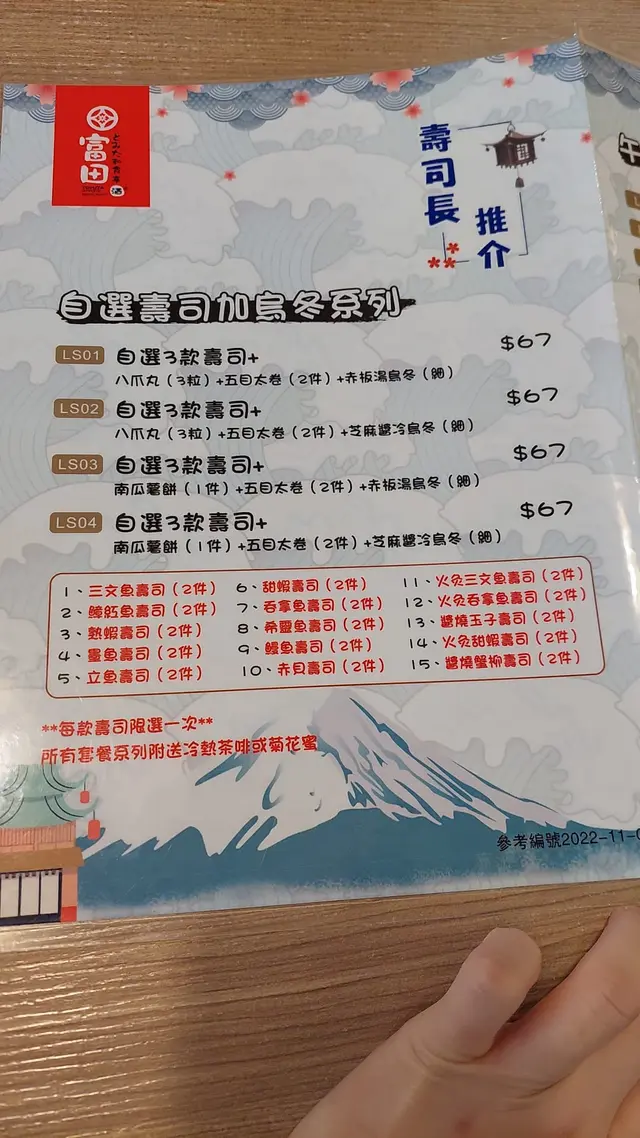 富田
壽司長
推介
自選壽司加烏冬系列
LS01 自選3款壽司+ $67
八爪丸（3粒）+五目太卷（2件）+赤板湯烏冬（細）
LS02 自選3款壽司+ $67
八爪丸（3粒）+五目太卷（2件）+芝麻醬冷烏冬（細）
LS03 自選3款壽司+ $67
南瓜薯餅（1件）+五目太卷（2件）+赤板湯烏冬（細）
LS04 自選3款壽司+ $67
南瓜薯餅（1件）+五目太卷（2件）+芝麻醬冷烏冬（細）
1、三文魚壽司（2件）
2、鱆紅魚壽司（2件）
3、熟蝦壽司（2件）
4、墨魚壽司（2件）
5、立魚壽司（2件）
6、甜蝦壽司（2件）
7、吞拿魚壽司（2件）
8、希靈魚壽司（2件）
9、鰻魚壽司（2件）
10、赤貝壽司（2件）
11、火灸三文魚壽司（2件）
12、火灸吞拿魚壽司（2件）
13、醬燒玉子壽司（2件）
14、火灸甜蝦壽司（2件）
15、醬燒蟹柳壽司（2件）
**每款壽司限選一次**
所有套餐系列附送冷熱茶啡或菊花蜜
參考編號2022-11-0